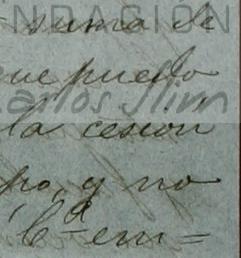 NDACIÓN
suma de
que puedo
Carlos Slim
la cesion
po, y no
6ª em=